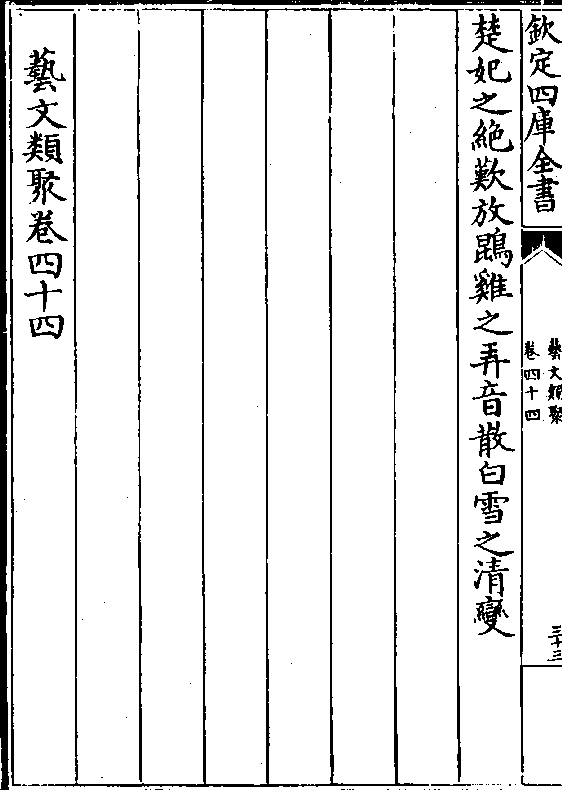 欽定四庫全書
藝文類聚
卷四十四
三十三
楚妃之絶歎放鵾雞之弄音散白雪之清變
藝文類聚卷四十四